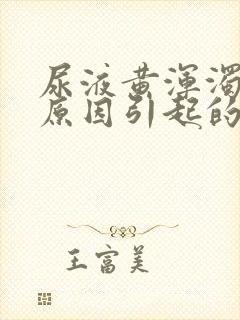 尿液黄浑浊
原因引起的
王富美